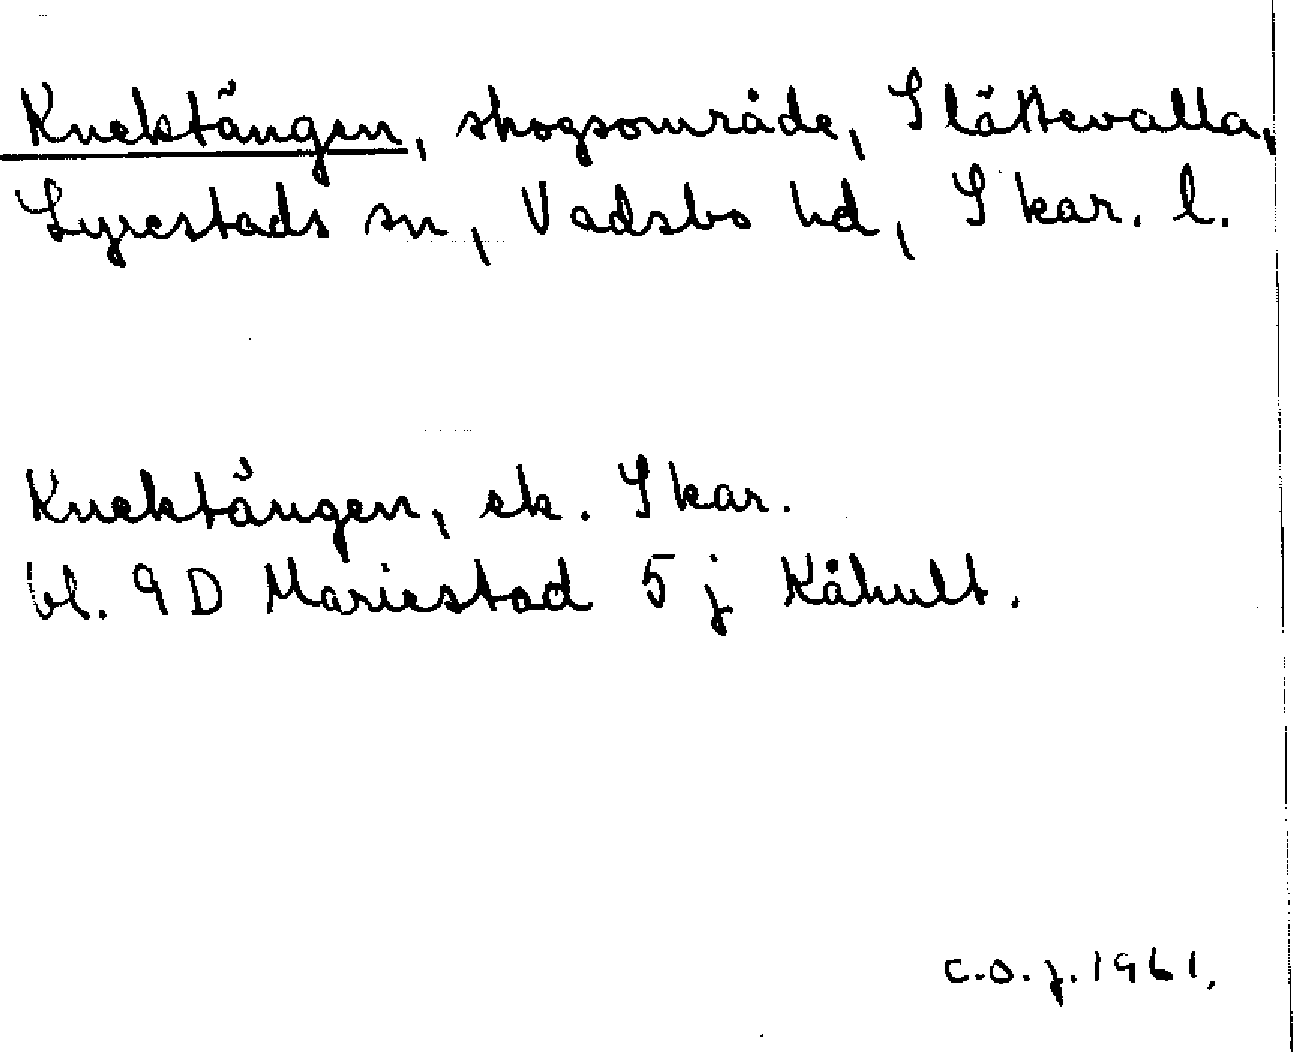 Knektängen, skogsområde, Slättevalla,
Lyrestads sn, Vadsbo hd, Skar. l.
Knektängen, ek. Skar.
bl. 9D Mariestad 5 j Kåhult.
C.O.J. 1961.